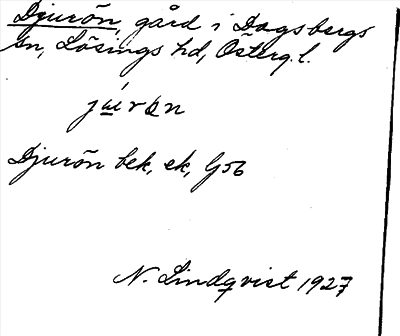 Djurön, gård i Dagsbergs
sn, Lösings hd, Österg.l.
Djurön bek, ek, Gsb
N. Lindqvist 1927